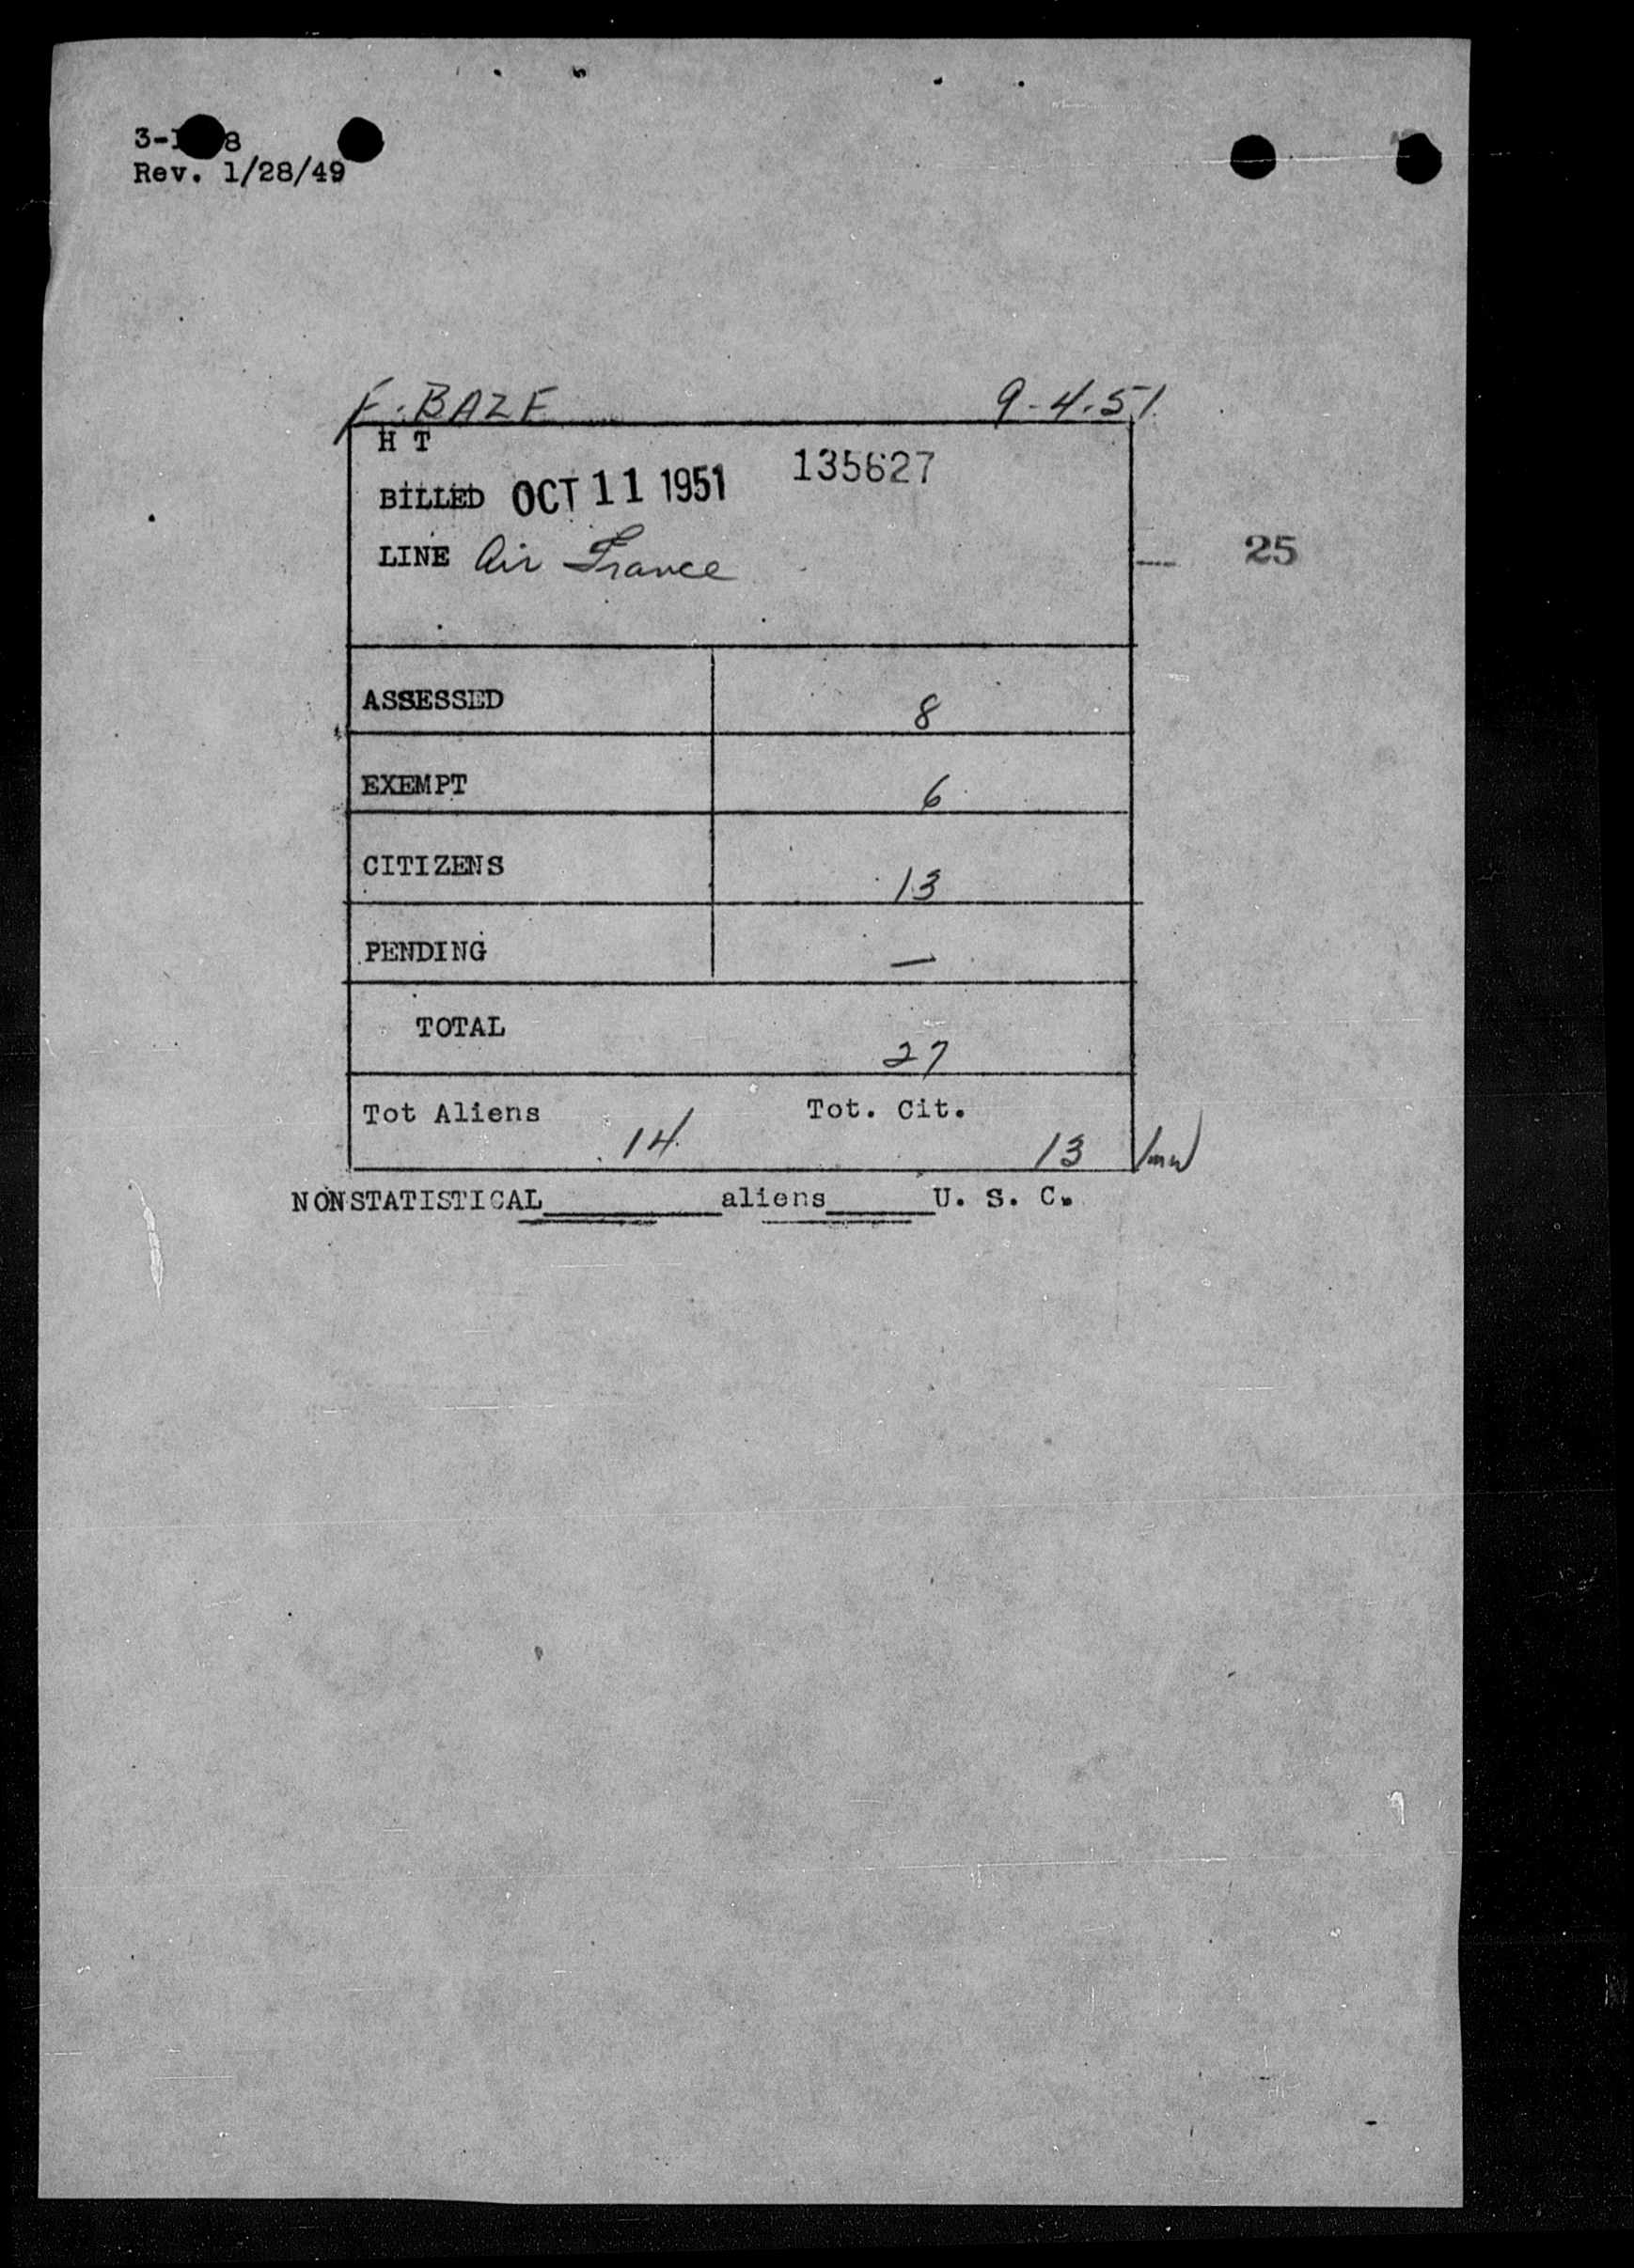 Rev. 1/28/49
F. BAZE 9-4-51
H T
BILLED OCT 11 1951 135627
LINE Air France
25
ASSESSED 8
EXEMPT 6
CITIZENS 13
PENDING —
TOTAL 27
Tot Aliens 14 Tot. Cit. 13
NONSTATISTICAL______aliens______U. S. C.